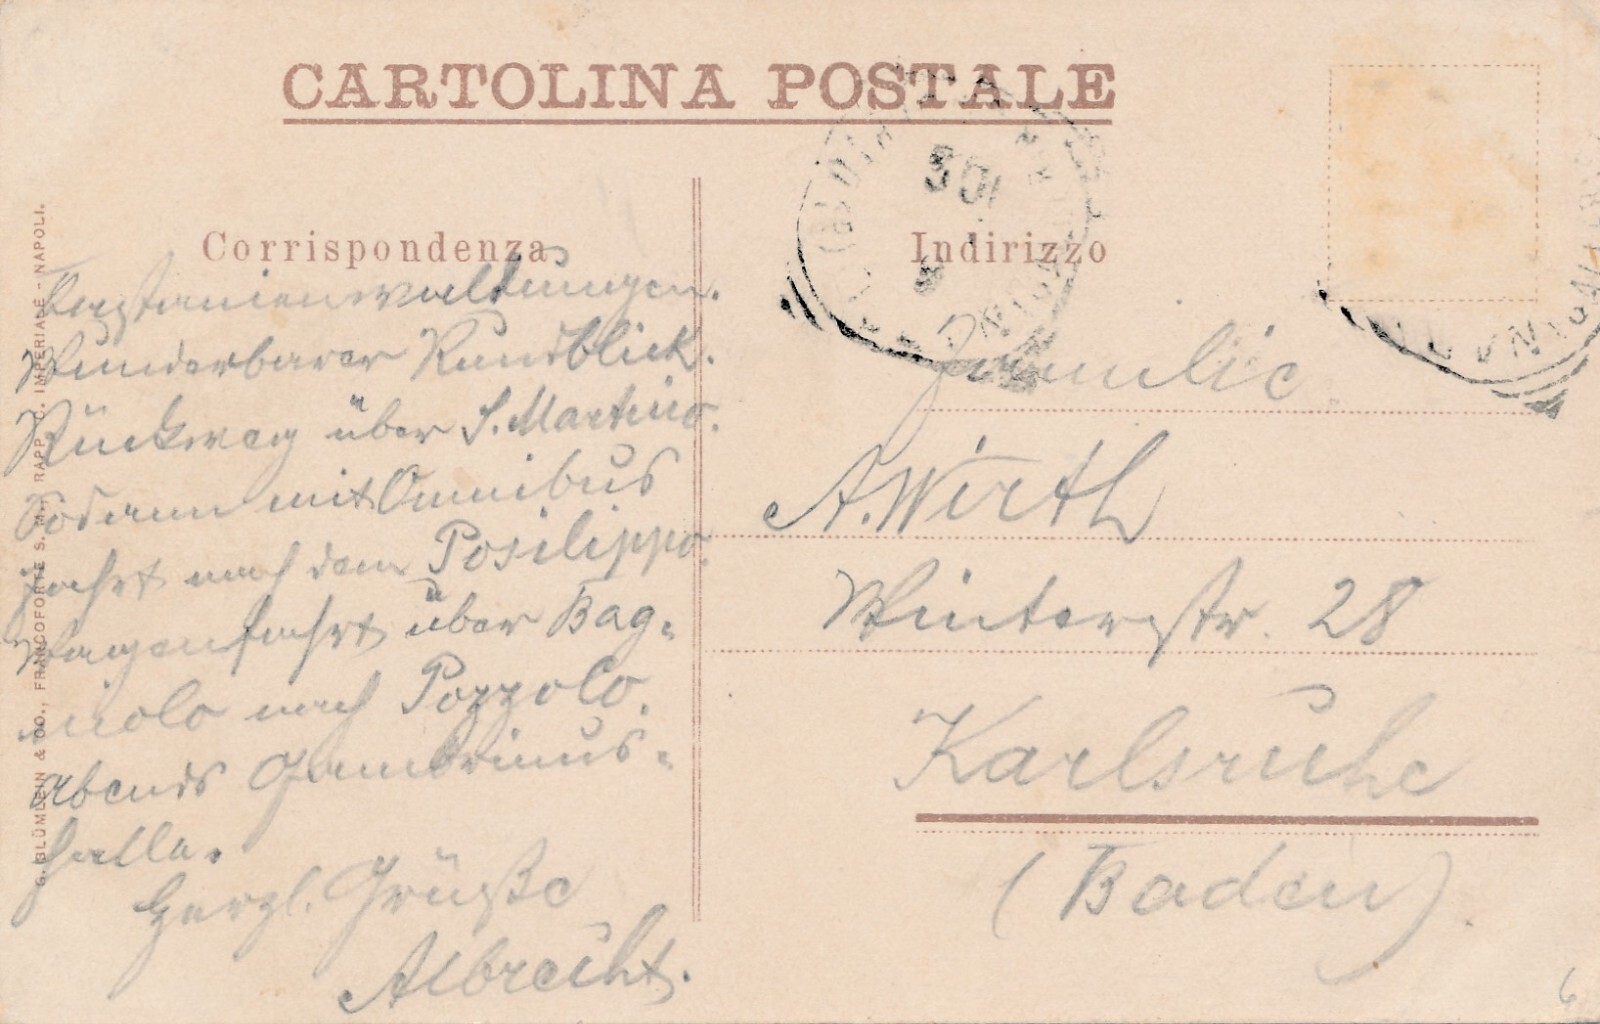 CARTOLINA POSTALE
Corrispondenza
Kastanienwaldungen.
Wunderbarer Rundblick.
Rückweg über S. Martino.
Sodann mit Omnibus
fahrt nach dem Posilippo.
Wagenfahrt über Bag-
nolo nach Pozzolo.
abends Gambrinus-
halle.
Herzl. Grüße
Albrecht.
Indirizzo
Familie
A. Wirth
Winterstr. 28
Karlsruhe
(Baden).
G. BLÜMLEIN & CO., FRANCOFORTE S. M., RAPP. C. IMPERIALE - NAPOLI.
6